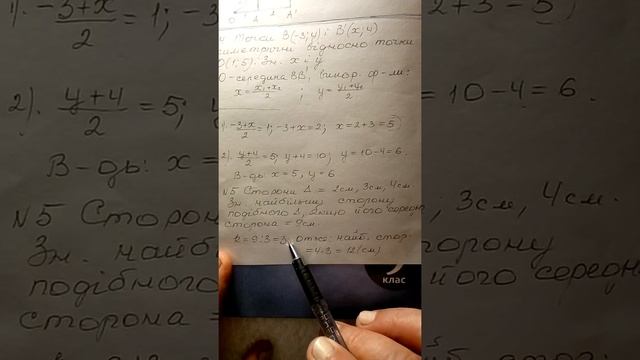 Точки B(-3;y) і B'(x;4)
симетричні відносно точки
O(1;5). Зн. x і y
O-середина BB',
x = (x₁+x₂)/2 ; y = (y₁+y₂)/2
1). (-3+x)/2 = 1; -3+x=2; x=2+3=5
2). (y+4)/2 = 5; y+4=10; y=10-4=6.
В-дь: x=5, y=6
№5 Сторони Δ = 2см, 3см, 4см.
Зн. найбільшу сторону
подібного Δ, якщо його середн.
сторона = 9см.
k=9:3=3, отже: найб. стор.
=4·3=12(см)
клас